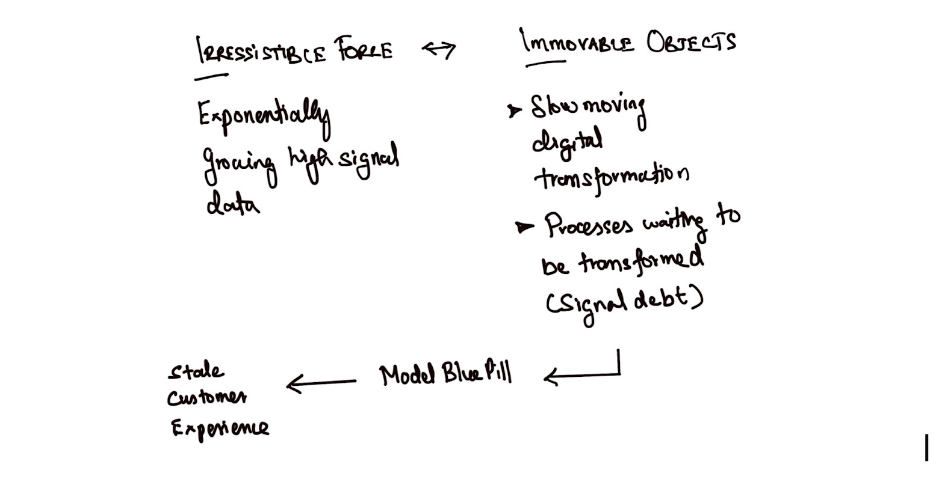 IRRESSISTIBLE FORCE ↔ IMMOVABLE OBJECTS
Exponentially
growing high signal
data
➤ Slow moving
digital
transformation
➤ Processes waiting to
be transformed
(Signal debt)
Stale
Customer
Experience
← Model Blue Pill ←